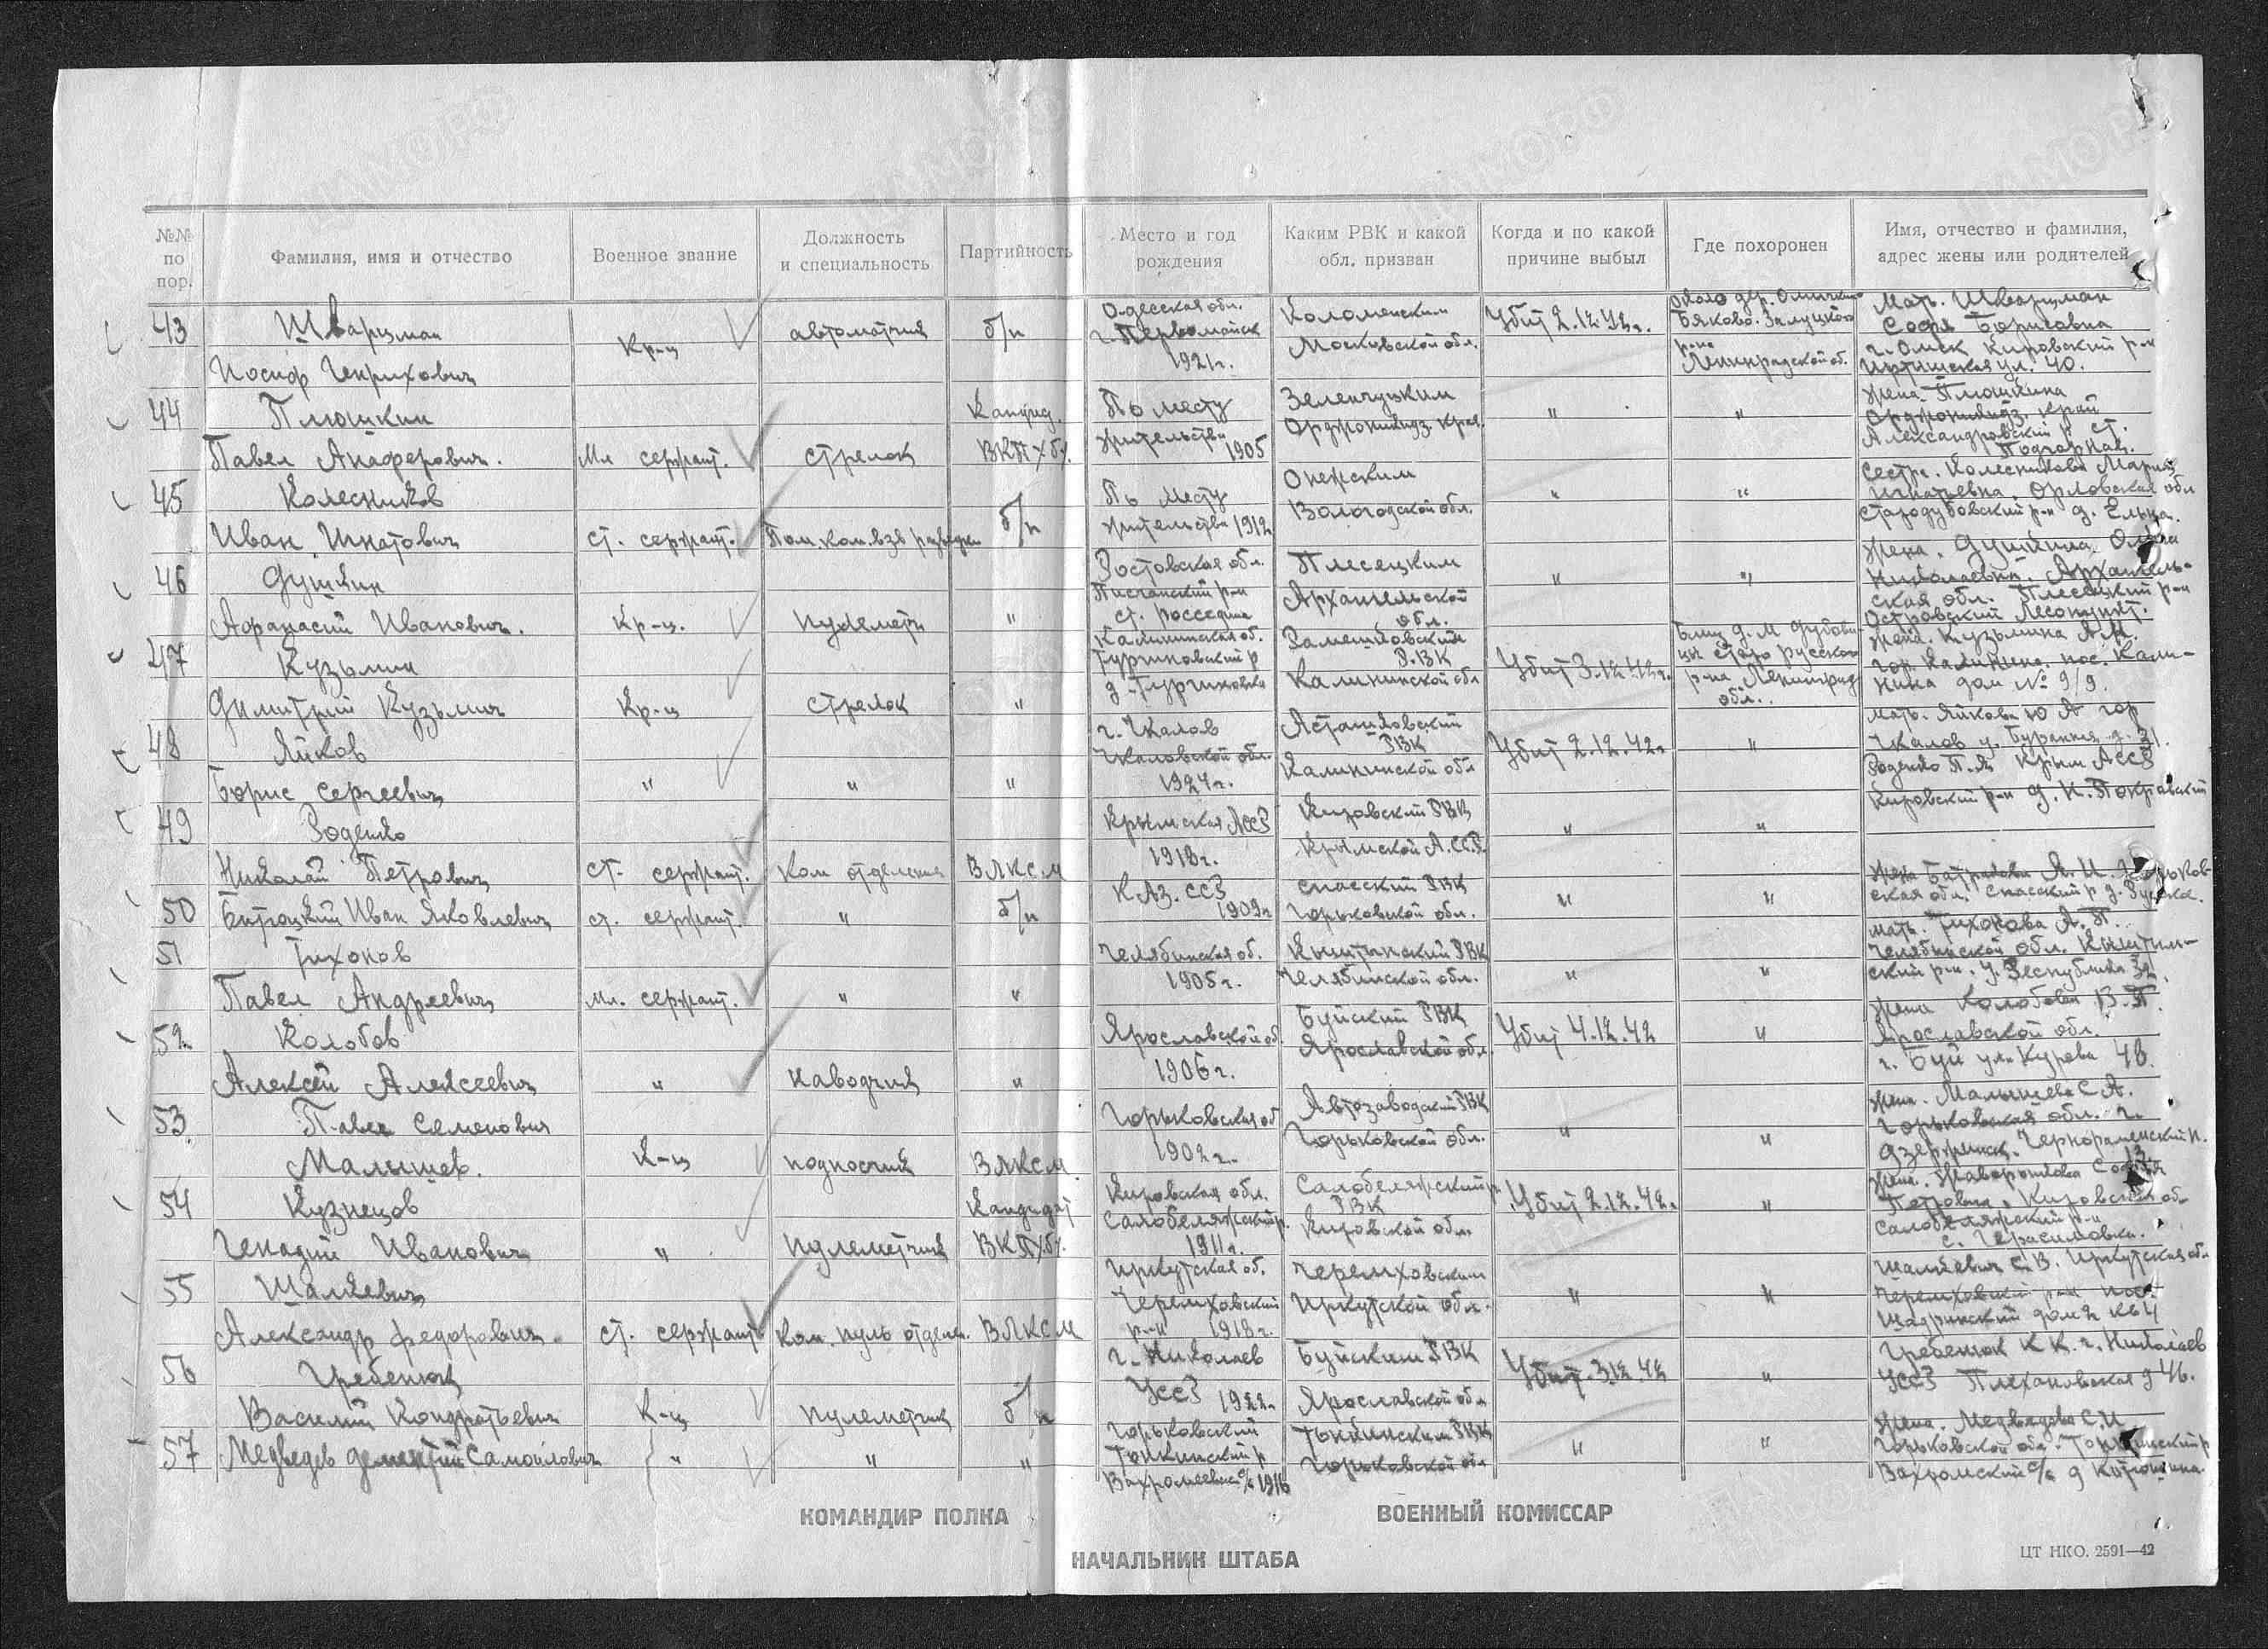 №№ по пор.
Фамилия, имя и отчество
Военное звание
Должность и специальность
Партийность
Место и год рождения
Каким РВК и какой обл. призван
Когда и по какой причине выбыл
Где похоронен
Имя, отчество и фамилия, адрес жены или родителей
43 Шварцман
Иосиф Генрихович
Кр-ц
автоматчик
б/п
Одесская обл.
г. Первомайск
1921 г.
Коломенским
Московской обл.
Убит 2.12.42 г.
Около дер.
Бяково. Залуцкого
р-на
Ленинградской об.
Мать. Шварцман
Софя Борисовна
г. Омск Кировский р-н
Иртишская ул. 40.
44 Плюшкин
Павел
Мл сержант.
стрелок
Кандид.
ВКП(б).
По месту
жительства
1905
Зеленчукким
Орджоникидз. края.
"
"
Жена Плюшкина
Орджоникидз. край
Александровский р ст.
45 Колесников
Иван Игнатович
ст. сержант.
Пом. ком. взв разведки
б/п
По месту
жительства 1912
Онежским
Вологодской обл.
"
"
Сестра. Колесникова Мария
Игнатьевна. Орловская обл
Стародубовский р-н д. Ельна.
46 Душкин
Афанасий Иванович.
Кр-ц.
пулеметч
"
Ростовская обл.
ст.
Плесецким
Архангельской
обл.
"
"
Жена. Душкина Ольга
Николаевна. Архангель-
ская обл. Плесецкий р-н
Островский Лесопункт.
47 Кузьмин
Димитрий Кузьмич
Кр-ц
стрелок
"
Калининская об.
Тургиновский р
д. Тургиновка
РВК
Калининской обл
Убит 3.12.42 г.
Близ д. М Дубови-
цы Старо русского
р-на Ленинград
обл.
Жена. Кузьмина А.М.
гор. Калинина. пос. Кали-
нина дом № 9/9.
48 Яйков
Борис Сергеевич
"
"
"
г. Чкалов
Чкаловской обл.
1924 г.
Асташковский
РВК
Калининской обл
Убит 2.12.42 г
"
Мать. Яйкова Ю А гор
Чкалов у. д. 31.
49 Роденко
Николай Петрович
ст. сержант.
Ком отделения
ВЛКСМ
Крымская АССР
1918 г.
Кировский РВК
Крымской А.С.С.Р.
"
"
Роденко П.Я. Крым АССР
Кировский р-н д. Н. Покравский
50 Иван Яковлевич
ст. сержант.
"
б/п
КАз. ССР
1909 г
Спасский РВК
Горьковской обл.
"
"
Жена
ская обл. Спасский р д.
51 Тихонов
Павел Андреевич
Мл. сержант.
"
"
Челябинская об.
1905 г.
Кыштынский РВК
Челябинской обл.
"
"
Мать. Тихонова А. П.
Челябинской обл. Кыштим-
ский р-н. у. Республики 32.
52 Колобов
Алексей Алексеевич
"
Наводчик
"
Ярославской об
1906 г.
Буйский РВК
Ярославской обл.
Убит 4.12.42
"
Жена Колобова В. П.
Ярославской обл.
г. Буй ул. 48.
53 Павел Семенович
Малышев.
К-ц
подносчик
ВЛКСМ
Горьковская об
1902 г.
Автозаводский РВК
Горьковской обл.
"
"
Жена. Малышева С А.
Горьковская обл. г.
Дзержинск. п.
13.
54 Кузнецов
Генадий Иванович
"
пулеметчик
Кандидат
ВКП(б).
Кировская обл.
Салобеляжский р.
1911 г.
Салобеляжский р
РВК
Кировской обл.
Убит 2.12.42 г.
"
Жена.
Петровна. Кировская об
Салобеляжский р-н
с. Герасимовка.
55 Шалкевич
Александр Федорович.
ст. сержант
Ком. пуль отделен.
ВЛКСМ
Иркутская об.
Черемховский
р-н 1918 г.
Черемховским
Иркутской обл.
"
"
Шалкевич С.В. Иркутская обл
Черемховский р-н пос.
Шадринский дом 2 кв 4
56 Гребенюк
Василий Кондратьевич
К-ц
пулеметчик
б/п
г. Николаев
УССР 1922 г.
Буйским РВК
Ярославской обл
Убит 3.12.42
"
Гребенюк К К. г. Николаев
УССР Плехановская д 46.
57 Медведев Дементий Самойлович
"
"
"
Горьковский
Тонкинский р
с/с 1916
Тонкинским РВК
Горьковской обл
"
"
Жена. Медведева С.И
Горьковской обл. Тонкинский р
Вахромский с/с д
КОМАНДИР ПОЛКА
ВОЕННЫЙ КОМИССАР
НАЧАЛЬНИК ШТАБА
ЦТ НКО. 2591—42